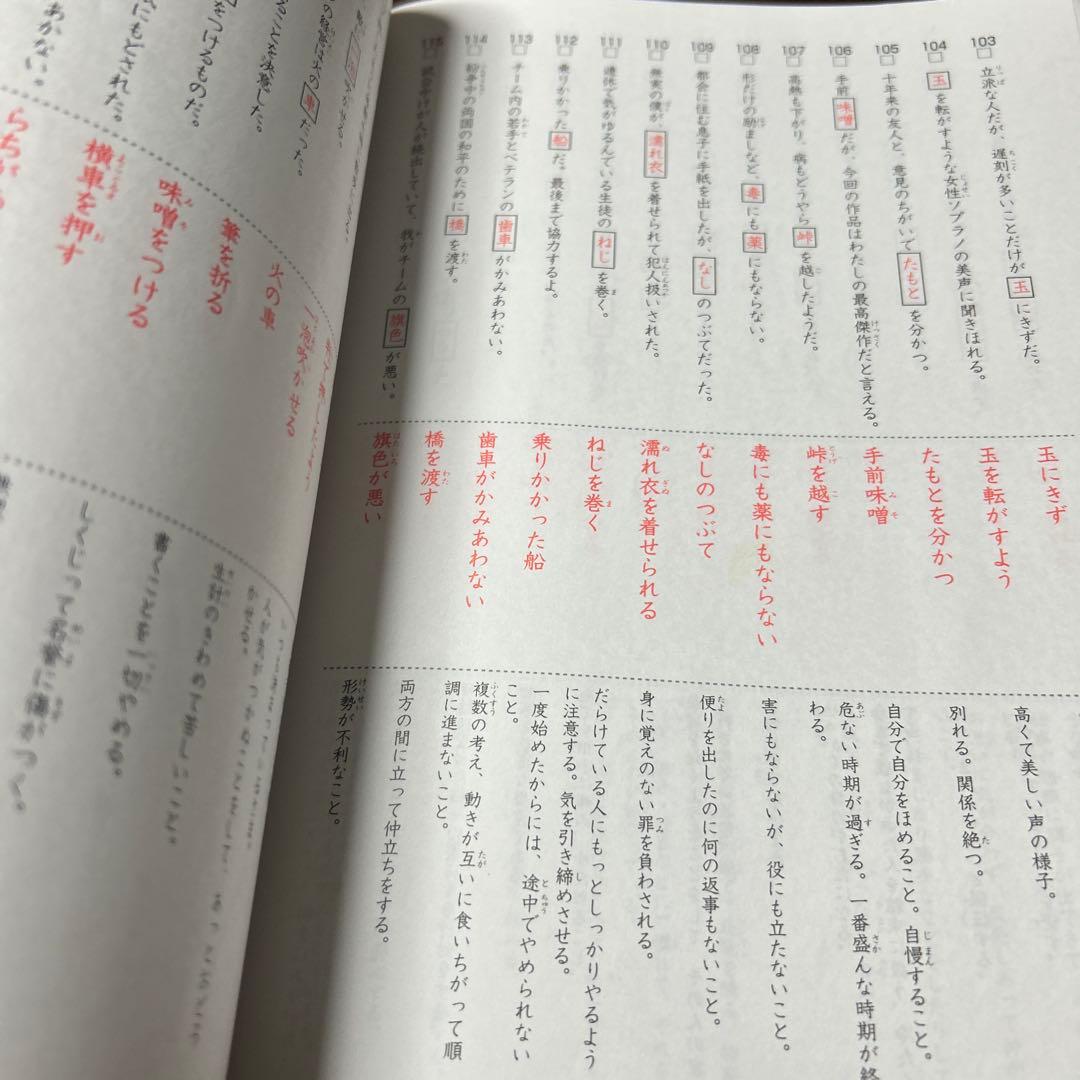 103 立派な人だが、遅刻が多いことだけが玉にきずだ。
104 玉を転がすような女性ソプラノの美声に聞きほれる。
105 十年来の友人と、意見のちがいでたもとを分かつ。
106 手前味噌だが、今回の作品はわたしの最高傑作だと言える。
107 高熱も下がり、病もどうやら峠を越したようだ。
108 形だけの励ましなど、毒にも薬にもならない。
109 都会に住む息子に手紙を出したが、なしのつぶてだった。
110 無実の僕が、濡れ衣を着せられて犯人扱いされた。
111 連休で気がゆるんでいる生徒のねじを巻く。
112 乗りかかった船だ。最後まで協力するよ。
113 チーム内の若手とベテランの歯車がかみあわない。
114 紛争中の両国の和平のために橋を渡す。
115 試合中けが人が続出していて、我がチームの旗色が悪い。
玉にきず
玉を転がすよう
たもとを分かつ
手前味噌
峠を越す
毒にも薬にもならない
なしのつぶて
濡れ衣を着せられる
ねじを巻く
乗りかかった船
歯車がかみあわない
橋を渡す
旗色が悪い
高くて美しい声の様子。
別れる。関係を絶つ。
自分で自分をほめること。自慢すること。
危ない時期が過ぎる。一番盛んな時期が終
わる。
害にもならないが、役にも立たないこと。
便りを出したのに何の返事もないこと。
身に覚えのない罪を負わされる。
だらけている人にもっとしっかりやるよう
に注意する。気を引き締めさせる。
一度始めたからには、途中でやめられない
こと。
複数の考え、動きが互いに食いちがって順
調に進まないこと。
両方の間に立って仲立ちをする。
形勢が不利なこと。
の経営は火の車だった。
ることを決意した。
をつけるものだ。
にもどされた。
あかない。
一泡吹かせる
火の車
筆を折る
味噌をつける
横車を押す
らちが
かせる。
生計のきわめて苦しいこと。
書くことを一切やめる。
しくじって名誉に傷がつく。